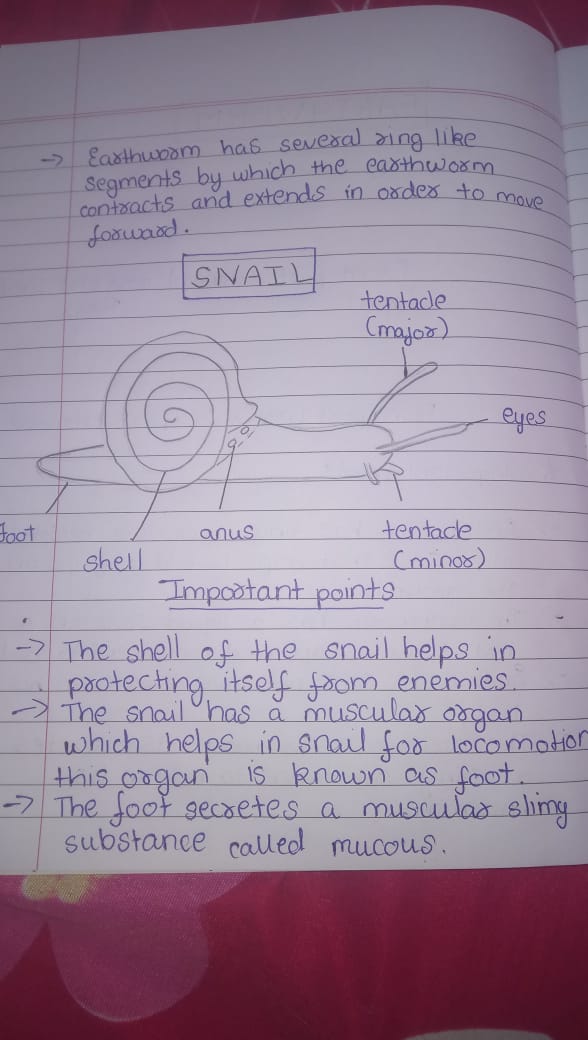 → Earthworm has several ring like
segments by which the earthworm
contracts and extends in order to move
forward.
SNAIL
tentacle
(major)
eyes
foot
anus
tentacle
shell
(minor)
Important points
→ The shell of the snail helps in
protecting itself from enemies.
→ The snail has a muscular organ
which helps in snail for locomotion
this organ is known as foot.
→ The foot secretes a muscular slimy
substance called mucous.